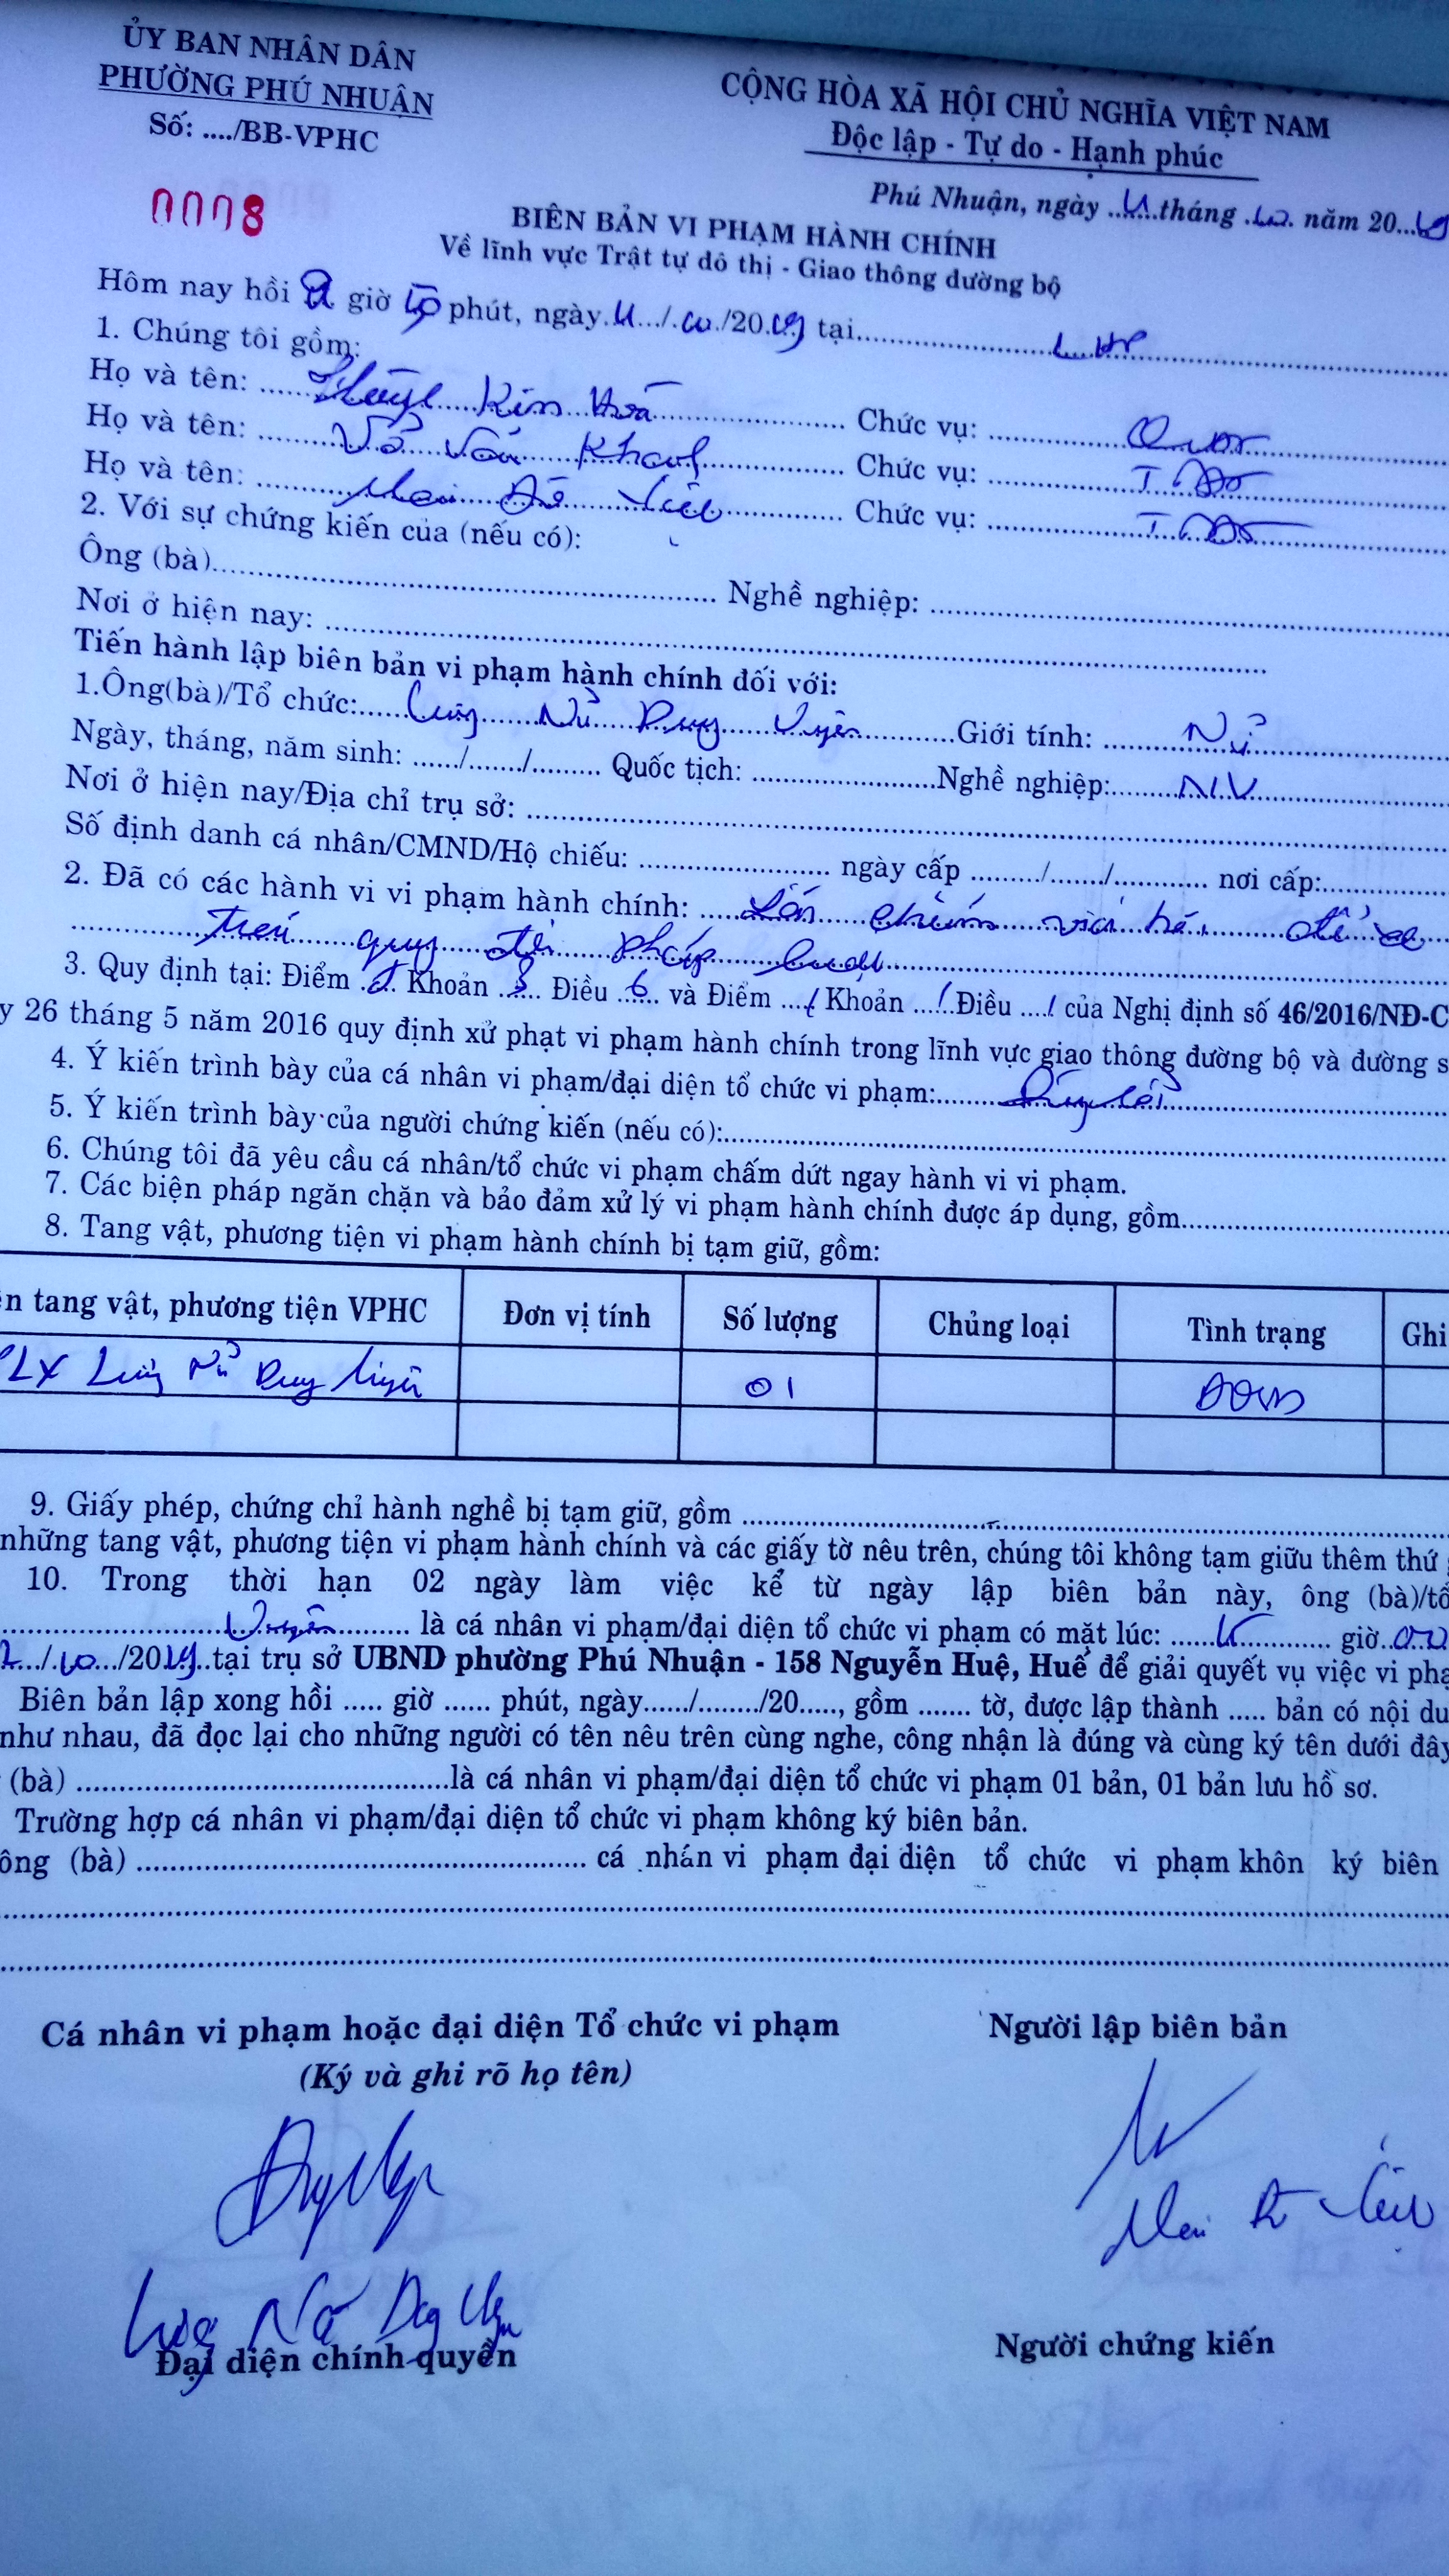 ỦY BAN NHÂN DÂN
PHƯỜNG PHÚ NHUẬN
Số: ..../BB-VPHC
CỘNG HÒA XÃ HỘI CHỦ NGHĨA VIỆT NAM
Độc lập - Tự do - Hạnh phúc
0008
Phú Nhuận, ngày ..11..tháng .10. năm 20...19
BIÊN BẢN VI PHẠM HÀNH CHÍNH
Về lĩnh vực Trật tự đô thị - Giao thông đường bộ
Hôm nay hồi giờ 50 phút, ngày.11.../.10./20.19 tại.......... LHP
1. Chúng tôi gồm:
Họ và tên: ...... Kim Hoà .......... Chức vụ: ..........
Họ và tên: ...... Võ Văn Khanh .......... Chức vụ: ..........
Họ và tên: ...... Mai .......... Chức vụ: ..........
2. Với sự chứng kiến của (nếu có):
Ông (bà).......... Nghề nghiệp: ..........
Nơi ở hiện nay: ..........
Tiến hành lập biên bản vi phạm hành chính đối với:
1.Ông(bà)/Tổ chức:...... Nữ Duy Uyên ..........Giới tính: .......... Nữ
Ngày, tháng, năm sinh: ....../......./......... Quốc tịch: ..........Nghề nghiệp:.......... NV
Nơi ở hiện nay/Địa chỉ trụ sở: ..........
Số định danh cá nhân/CMND/Hộ chiếu: .......... ngày cấp ........./......./............ nơi cấp:..........
2. Đã có các hành vi vi phạm hành chính: ...... Lấn chiếm vỉa hè để xe
trái quy định pháp luật
3. Quy định tại: Điểm .đ. Khoản ..... Điều ..6... và Điểm ..../ Khoản ..../.Điều ..../ của Nghị định số 46/2016/NĐ-C
y 26 tháng 5 năm 2016 quy định xử phạt vi phạm hành chính trong lĩnh vực giao thông đường bộ và đường s
4. Ý kiến trình bày của cá nhân vi phạm/đại diện tổ chức vi phạm:..........
5. Ý kiến trình bày của người chứng kiến (nếu có):..........
6. Chúng tôi đã yêu cầu cá nhân/tổ chức vi phạm chấm dứt ngay hành vi vi phạm.
7. Các biện pháp ngăn chặn và bảo đảm xử lý vi phạm hành chính được áp dụng, gồm..........
8. Tang vật, phương tiện vi phạm hành chính bị tạm giữ, gồm:
n tang vật, phương tiện VPHC Đơn vị tính Số lượng Chủng loại Tình trạng Ghi
PLX Nữ Duy Uyên 01
9. Giấy phép, chứng chỉ hành nghề bị tạm giữ, gồm ..........
những tang vật, phương tiện vi phạm hành chính và các giấy tờ nêu trên, chúng tôi không tạm giữu thêm thứ
10. Trong thời hạn 02 ngày làm việc kể từ ngày lập biên bản này, ông (bà)/tổ
.......... Uyên .......... là cá nhân vi phạm/đại diện tổ chức vi phạm có mặt lúc: .......... giờ..00
.../.10.../2019..tại trụ sở UBND phường Phú Nhuận - 158 Nguyễn Huệ, Huế để giải quyết vụ việc vi phạ
Biên bản lập xong hồi ..... giờ ...... phút, ngày....../......../20....., gồm ....... tờ, được lập thành ..... bản có nội du
như nhau, đã đọc lại cho những người có tên nêu trên cùng nghe, công nhận là đúng và cùng ký tên dưới đây
(bà) ..........là cá nhân vi phạm/đại diện tổ chức vi phạm 01 bản, 01 bản lưu hồ sơ.
Trường hợp cá nhân vi phạm/đại diện tổ chức vi phạm không ký biên bản.
ông (bà) .......... cá nhán vi phạm đại diện tổ chức vi phạm khôn ký biên
Cá nhân vi phạm hoặc đại diện Tổ chức vi phạm
Người lập biên bản
(Ký và ghi rõ họ tên)
Mai
Nữ Duy Uyên
Đại diện chính quyền
Người chứng kiến